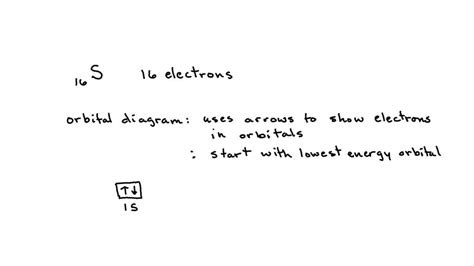 ₁₆S 16 electrons
orbital diagram: uses arrows to show electrons
in orbitals
: start with lowest energy orbital
↑↓
1s